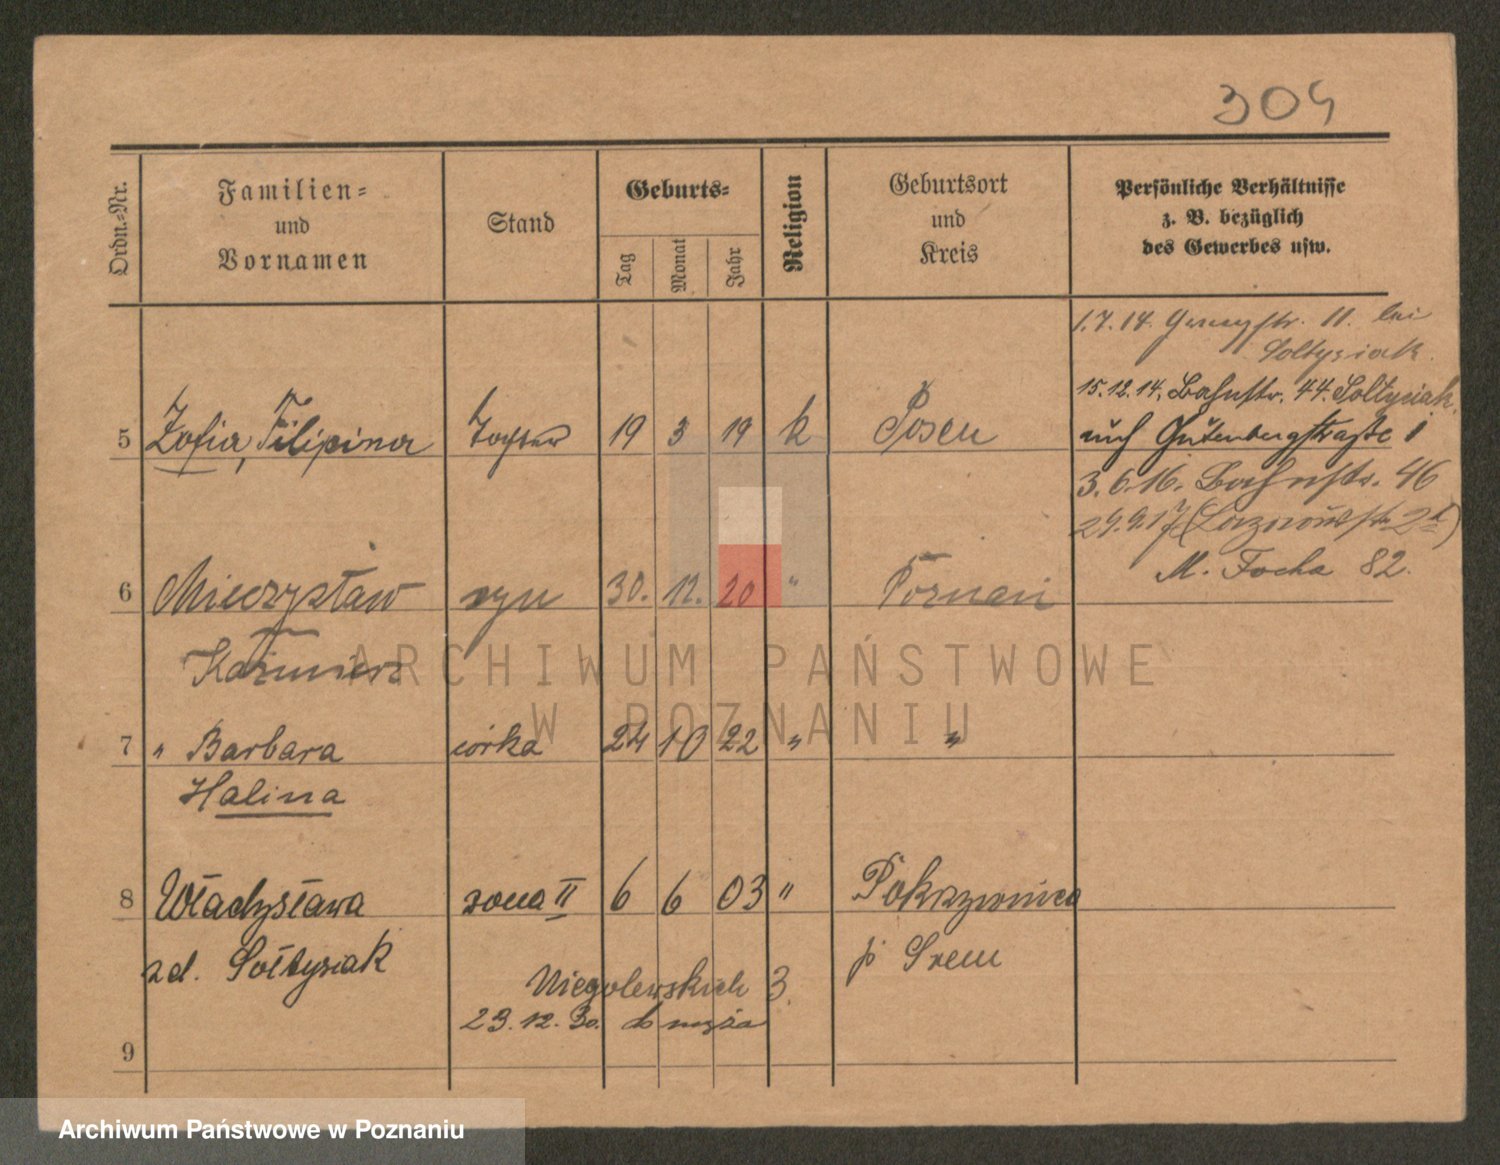 304
Ordn.-Nr.
Familien-
und
Vornamen
Stand
Geburts-
Tag
Monat
Jahr
Religion
Geburtsort
und
Kreis
Persönliche Verhältnisse
z. B. bezüglich
des Gewerbes usw.
1.7.14. 11. bei
Soltysiak.
15.12.14. Bahnstr. 44. Soltysiak.
5 Zofia, Filipina Tochter 19 3 19 k Posen
auch Gutenbergstraße 1
3.6.16. Bahnstr. 46
29.9.17 2
M. Focha 82.
6 Mieczysław syn 30. 12. 20 " Poznań
Kazimierz
7 " Barbara córka 24 10 22 " "
Halina
8 Władysława żona II 6 6 03 " Pokrzywnica
zd. Sołtysiak p Srem
Niegolewskich 3.
23.12.30. do męża
9
ARCHIWUM PAŃSTWOWE
W POZNANIU
Archiwum Państwowe w Poznaniu